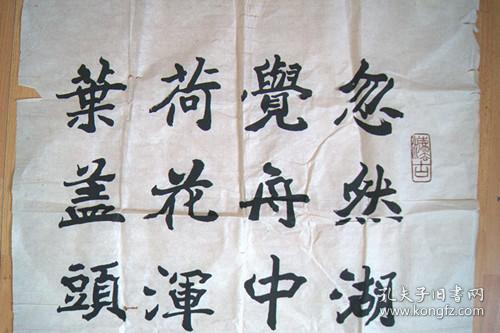 忽然湖
覺舟中
荷花渾
葉盖頭
孔夫子旧书网
www.kongfz.com